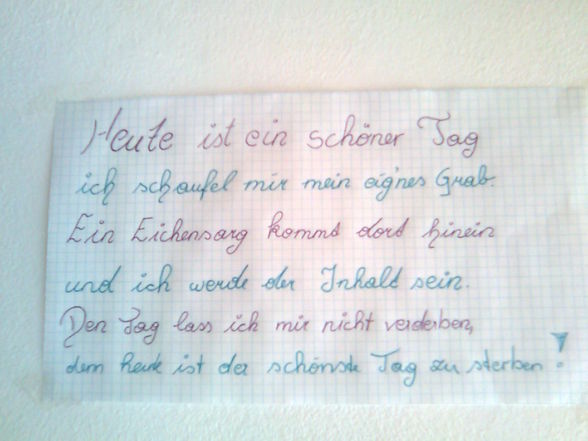 Heute ist ein schöner Tag
ich schaufel mir mein eig'nes Grab.
Ein Eichensarg kommt dort hinein
und ich werde der Inhalt sein.
Den Tag lass ich mir nicht verderben,
denn heute ist der schönste Tag zu sterben!